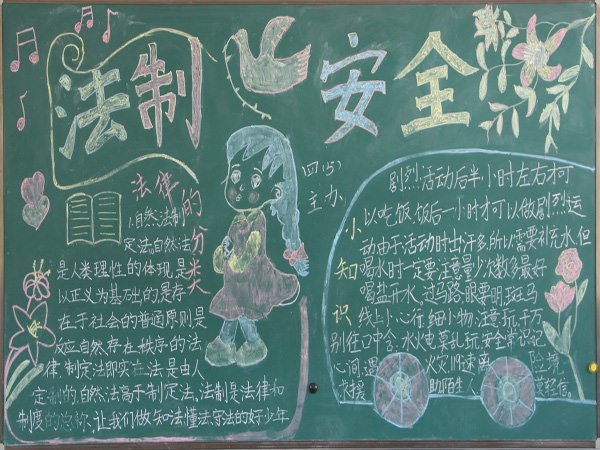 法制
安全
四(5)
主办
法律的分类
1.自然法制
定法自然法
是人类理性的体现是
以正义为基础的是存
在于社会的普通原则是
反应自然存在秩序的法
律 制定法即实在法是由人
定制的,自然法高于制定法,法制是法律和
制度的总称,让我们做知法懂法守法的好少年
小知识
剧烈活动后半小时左右才可
以吃饭 饭后一小时才可以做剧烈运
动由于活动时出汗多所以需补充水但
喝水时一定要注意量少次数多最好
喝盐开水,过马路,眼要明,斑马
线上小心行,细小物,注意玩,千万
别往口中含,水火电莫乱玩,安全常识记
心间,遇 火灾 速离 险境
求援 助陌生人 莫轻信。